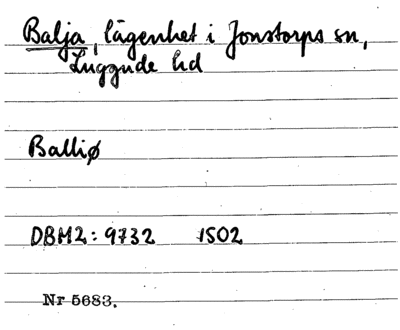 Balja, lägenhet i Jonstorps sn,
Luggude hd
Balliø
DBM2: 9732 1502
Nr 5683.